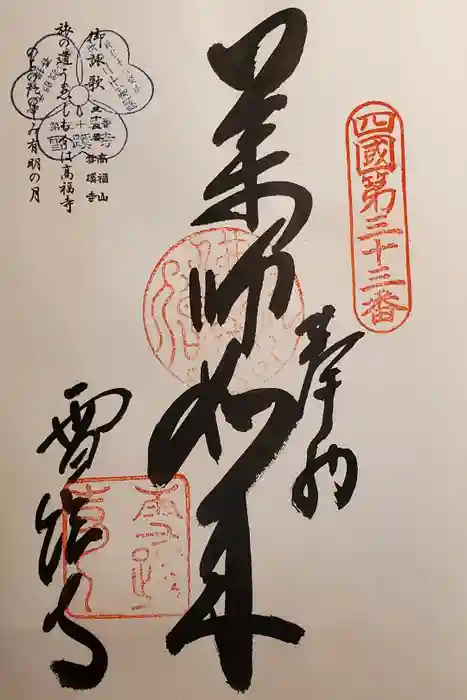 四國第三十三番
奉納
薬師如来
雪蹊寺
御詠歌
高福山
雪蹊寺
旅の道うゑしも今は高福寺
のちのたのしみ有明の月